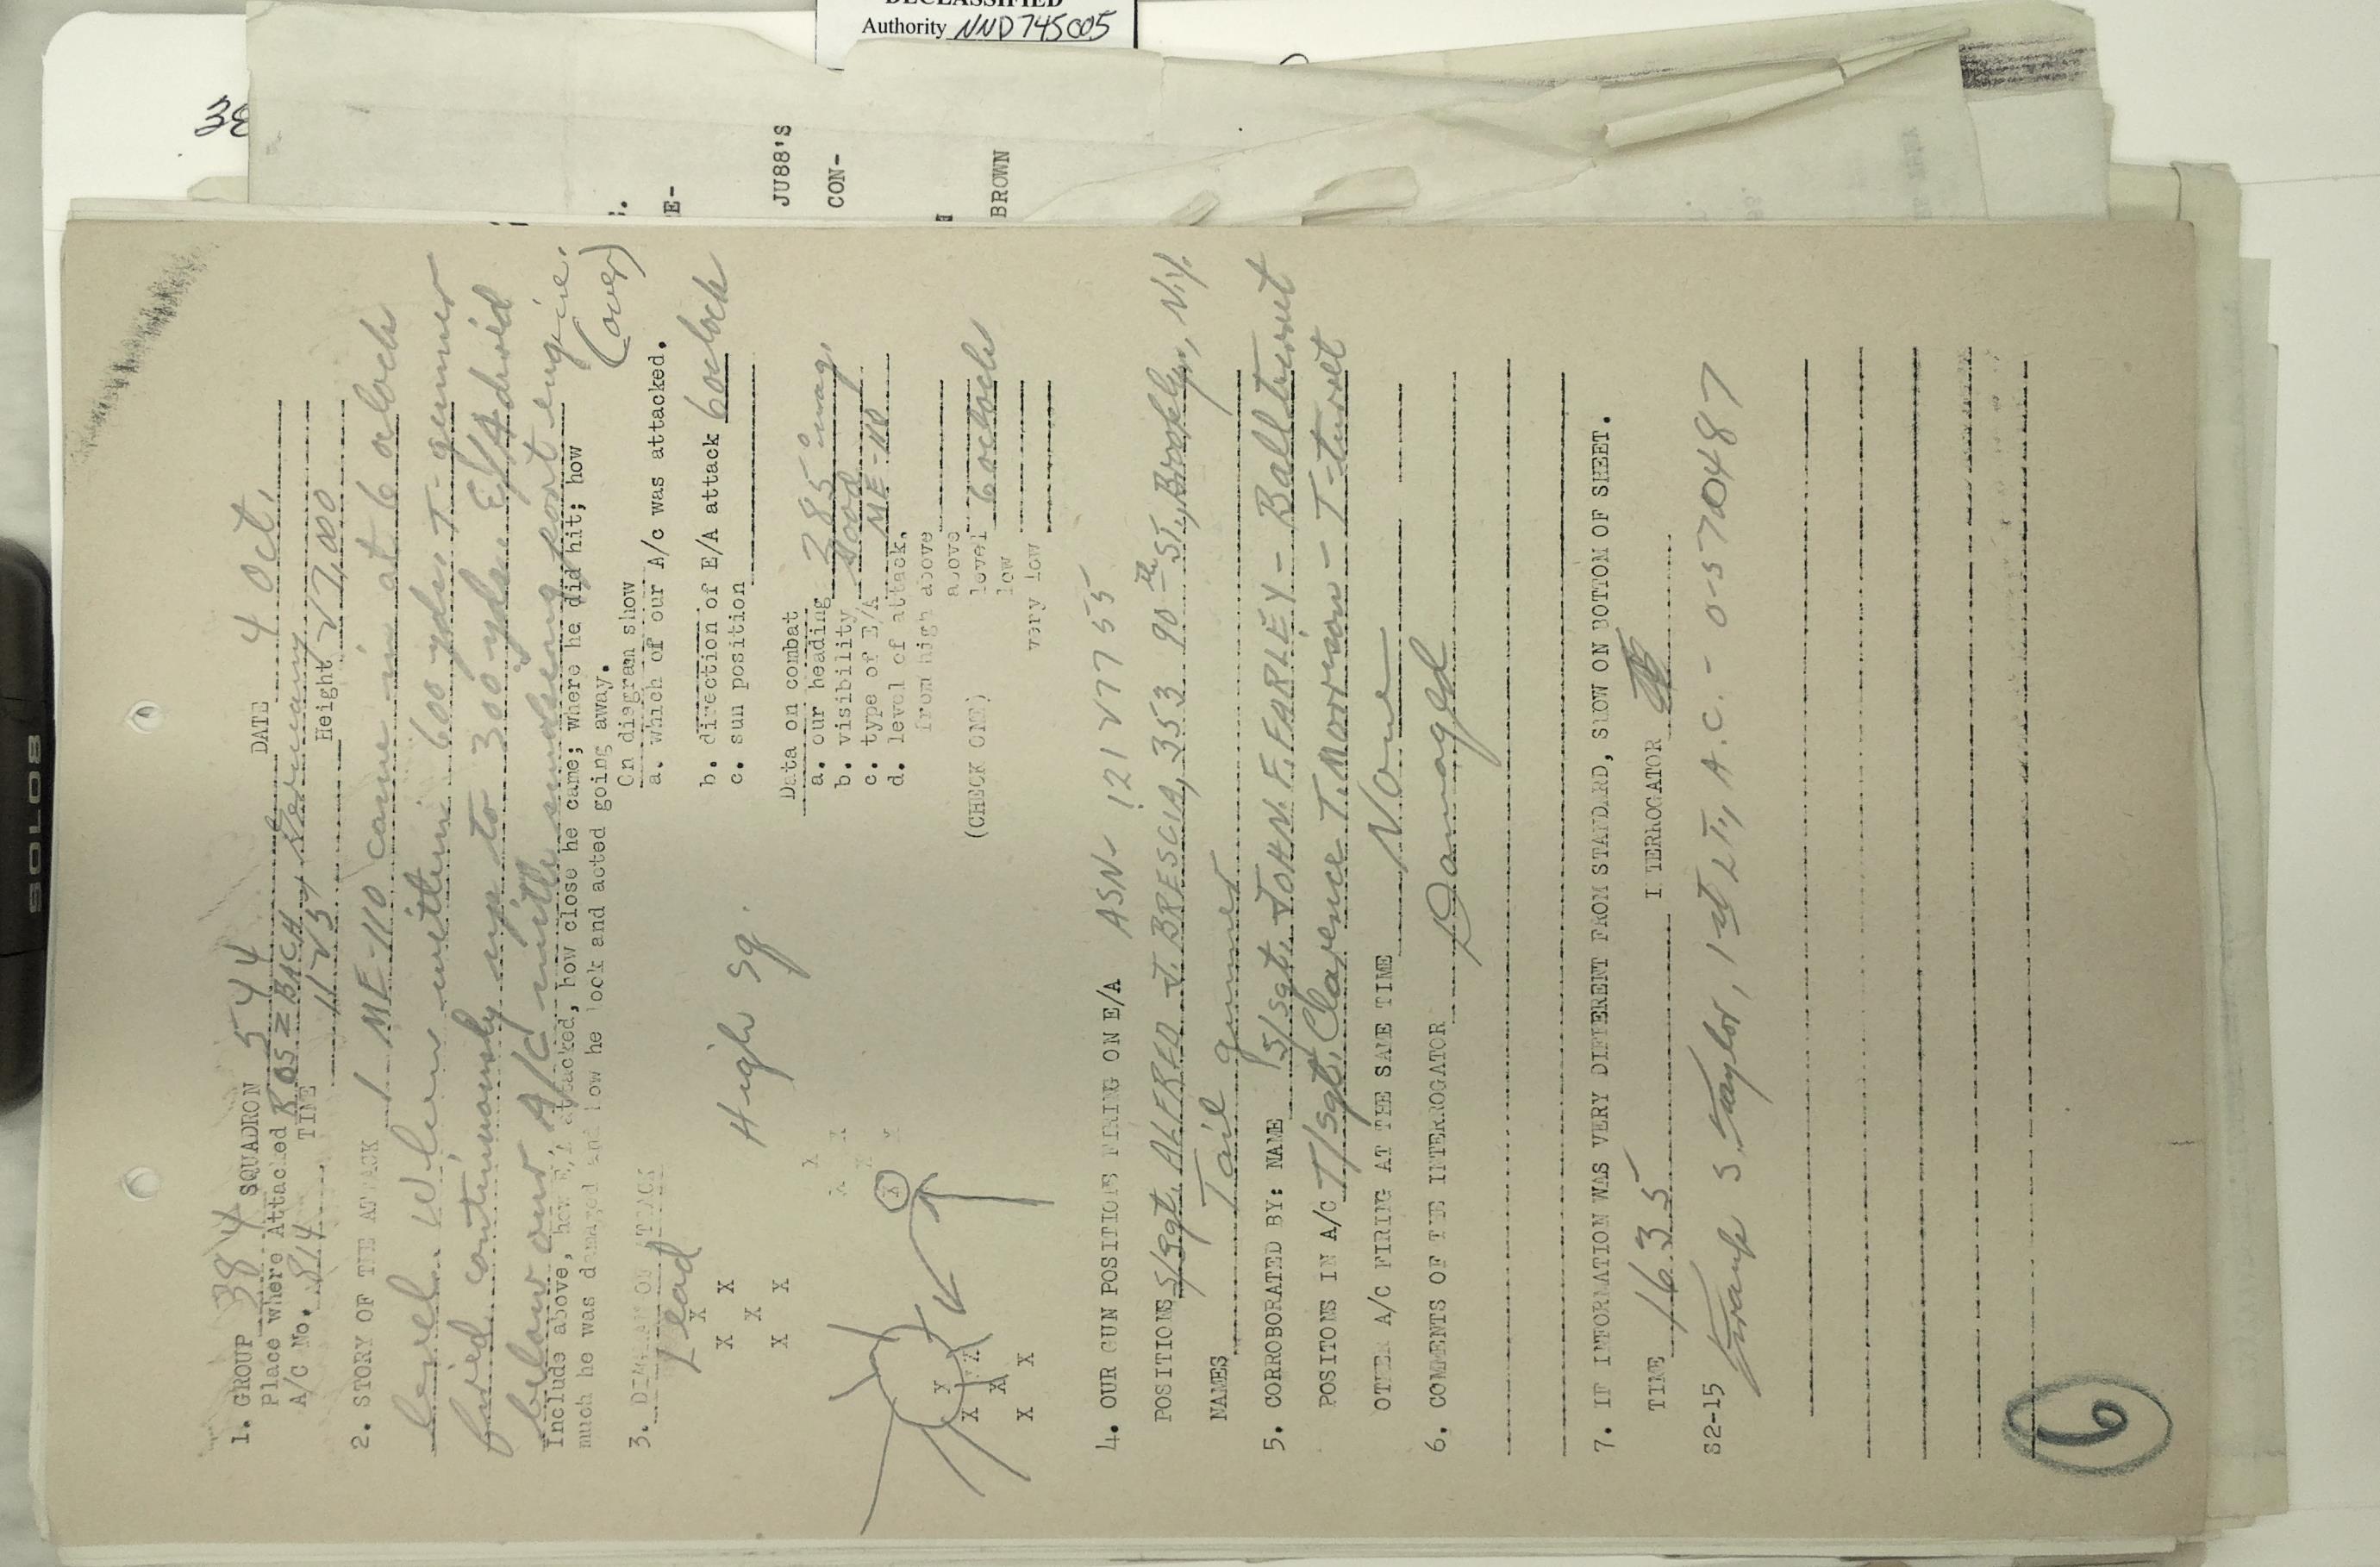 DECLASSIFIED
Authority NND 745005
SOLO8
38
E-
JU88'S
CON-
BROWN
1. GROUP 384 SQUADRON 544 DATE 4 Oct.
Place where Attacked ROSZBACH, Germany
A/C No. 814 TIME 1125 Height 27,000
2. STORY OF THE ATTACK 1 ME-110 came in at 6 oclock
level. When within 600 yds. T-gunner
fired continuously up to 300 yds. E/A dived
below our A/C with smoking port engine.
(over)
Include above, how E/A attacked, how close he came; where he did hit; how
much he was damaged and how he look and acted going away.
3. DIAGRAM OF ATTACK
On diagram show
a. which of our A/c was attacked.
b. direction of E/A attack 6 oclock
c. sun position
Lead
High Sq.
Data on combat
a. our heading 285° mag.
b. visibility Good
c. type of E/A ME-110
d. level of attack.
from high above
above
level 6 oclock
low
very low
(CHECK ONE)
4. OUR GUN POSITIONS FIRING ON E/A ASN- 12127755
POSITIONS S/Sgt. ALFRED J. BRESCIA, 353 90th ST., Brooklyn, N.Y.
NAMES Tail gunner
5. CORROBORATED BY: NAME S/Sgt. JOHN F. FARLEY - Ball turret
POSITONS IN A/C T/Sgt. Clarence T. Morrison - T-turret
OTHER A/C FIRING AT THE SAME TIME None
6. COMMENTS OF THE INTERROGATOR Damaged
7. IF INFORMATION WAS VERY DIFFERENT FROM STANDARD, SHOW ON BOTTOM OF SHEET.
TIME 1635 I TERROGATOR
S2-15 Frank S. Taylor, 1st LT, A.C. - 0-570487
6